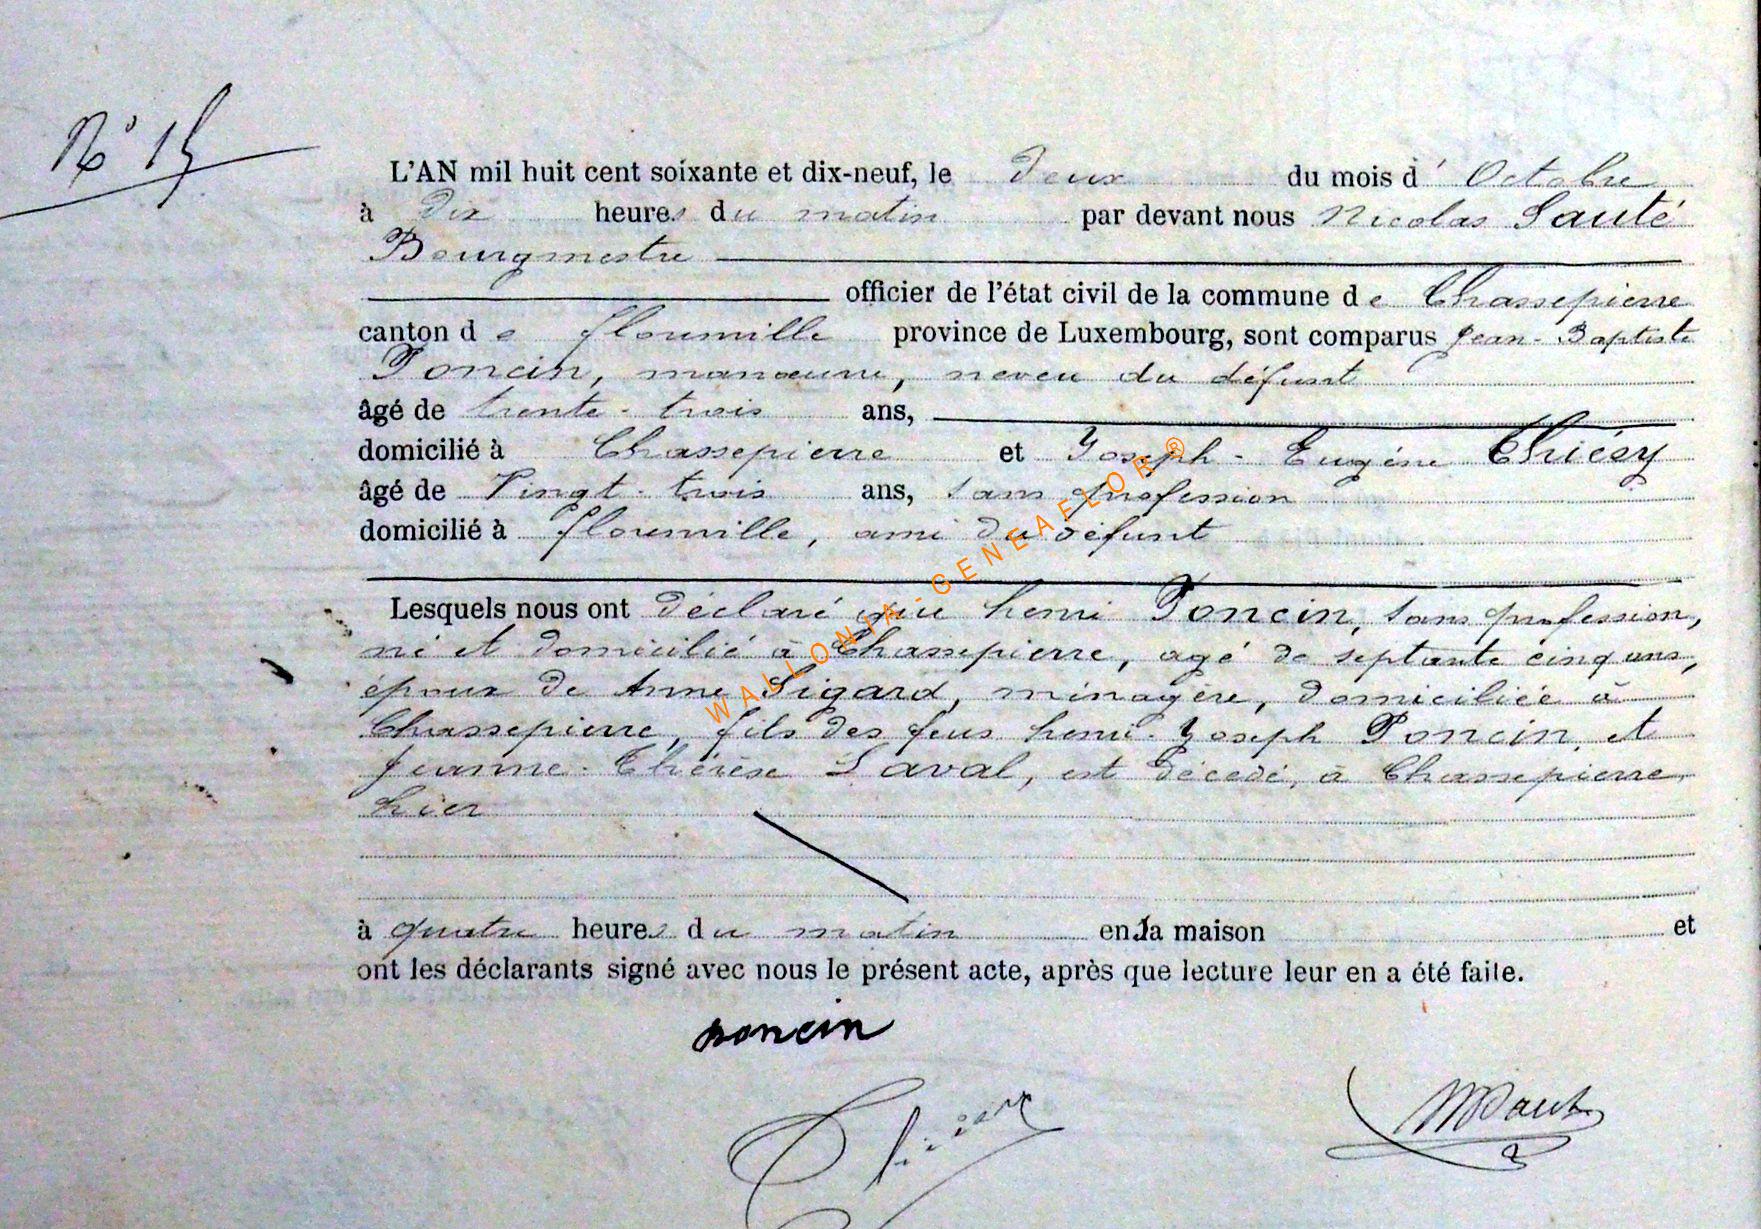 N° 15
L'AN mil huit cent soixante et dix-neuf, le deux du mois d'Octobre
à dix heures du matin par devant nous Nicolas Sauté
Bourgmestre
officier de l'état civil de la commune de Chassepierre
canton de florenville province de Luxembourg, sont comparus Jean-Baptiste
Poncin, manœuvre, neveu du défunt
âgé de trente-trois ans,
domicilié à Chassepierre et Joseph-Eugène Thiéry
âgé de Vingt-trois ans, sans profession
domicilié à florenville, ami du défunt
Lesquels nous ont déclaré que henri Poncin, sans profession,
né et domicilié à Chassepierre, agé de septante cinq ans,
époux de Anne Sigard, ménagère, domiciliée à
Chassepierre, fils des feus henri-Joseph Poncin, et
Jeanne-Thérèse Laval, est décedé, à Chassepierre,
hier
à quatre heures du matin en la maison et
ont les déclarants signé avec nous le présent acte, après que lecture leur en a été faite.
poncin
Thiéry
NSauté
WALLONIA-GENEAFLOR®